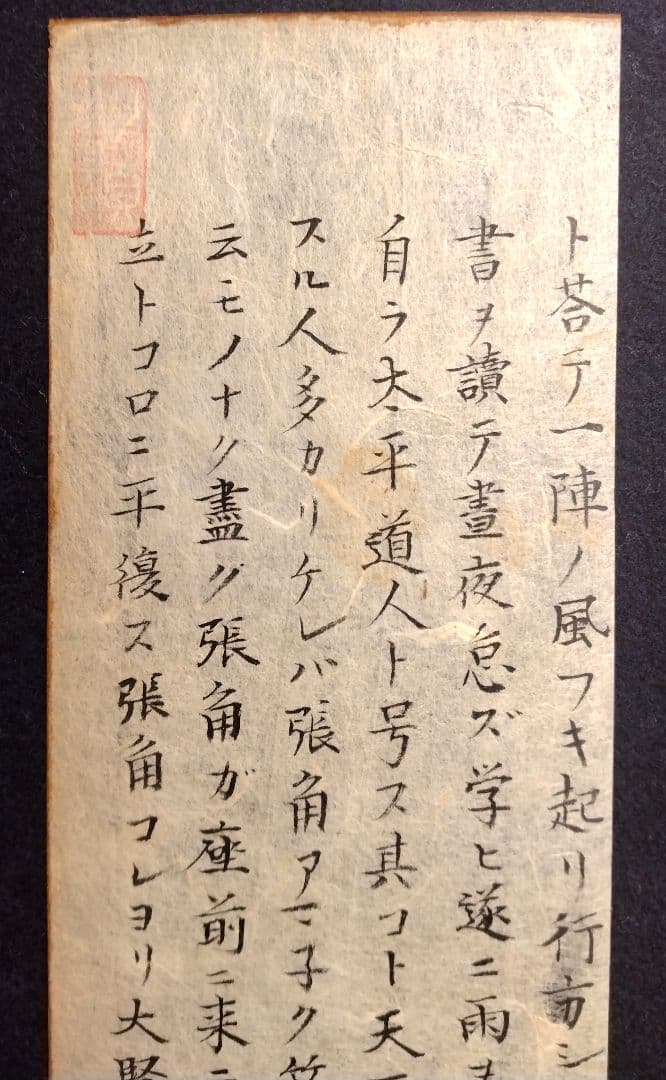 ト荅テ一陣ノ風フキ起リ行方シ
書ヲ讀テ晝夜怠ズ学ヒ遂ニ雨ヲ
ノ自ラ太平道人ト号ス其コト天
スル人多カリケレバ張角アマ子ク
云モノナク盡ク張角ガ座前ニ来ニ
立トコロニ平復ス張角コレヨリ大